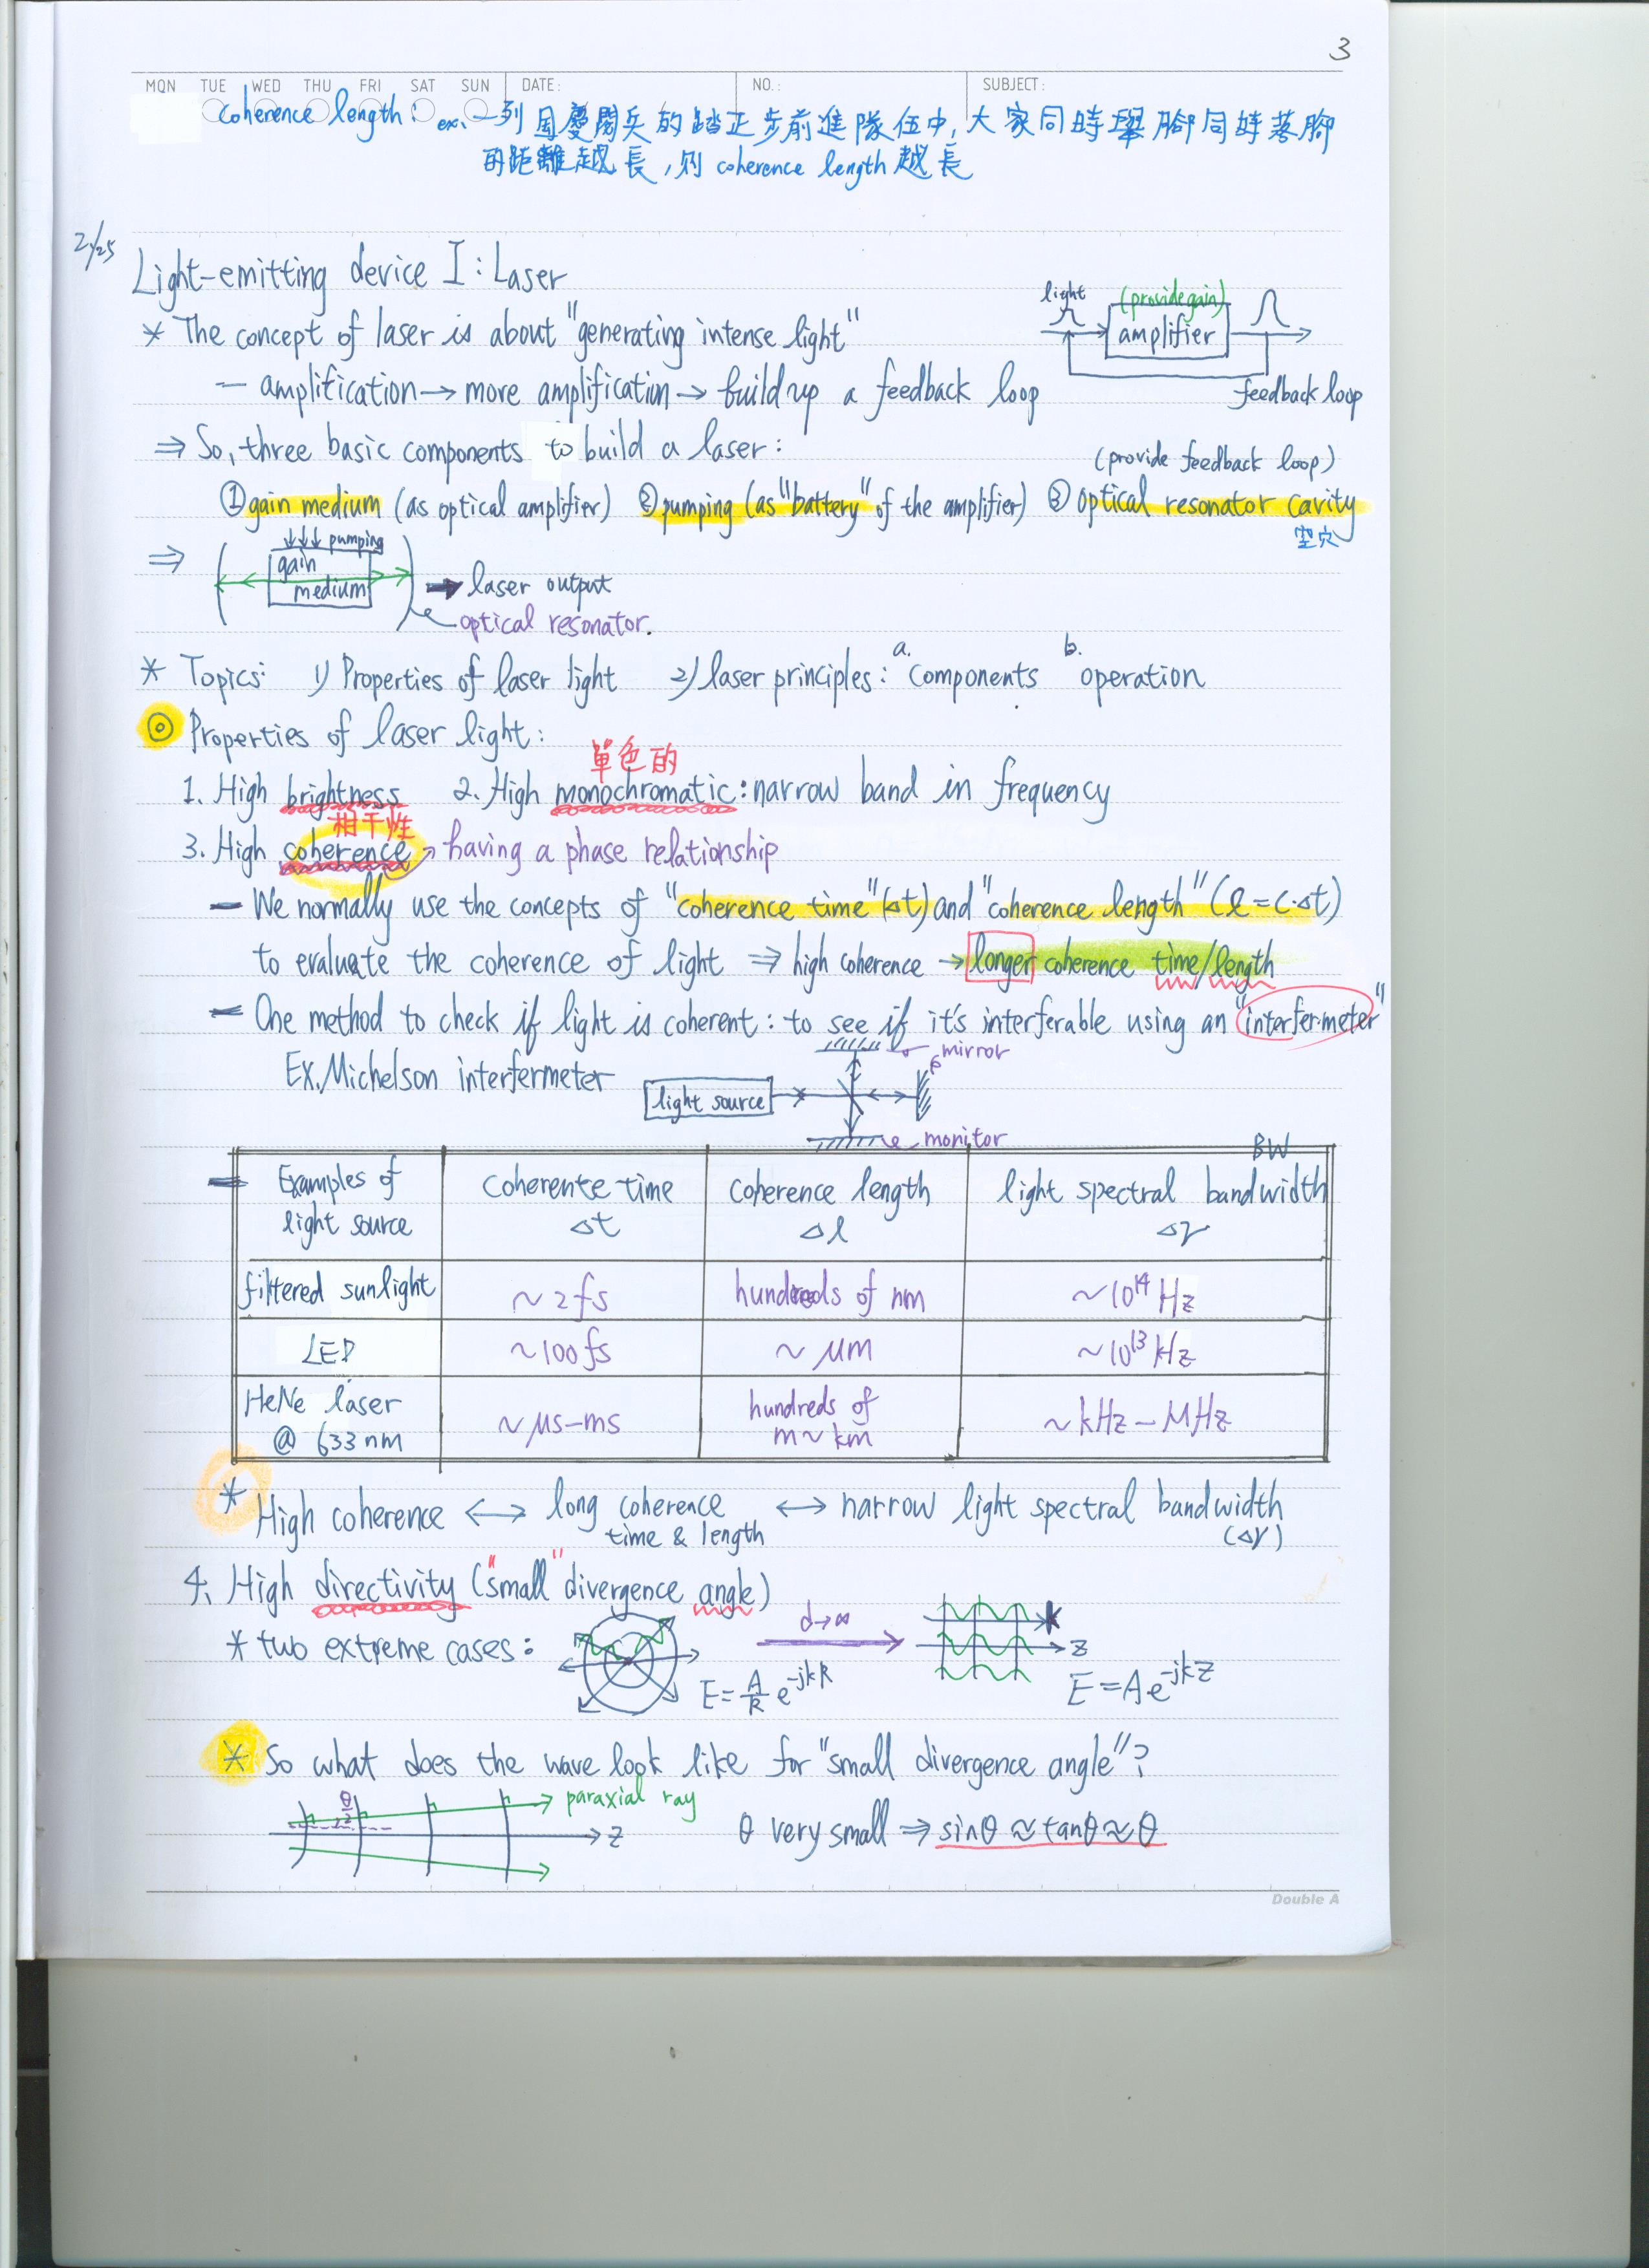 3
MON TUE WED THU FRI SAT SUN DATE: NO.: SUBJECT:
coherence length: ex. 一列國慶閱兵的踏正步前進隊伍中, 大家同時舉腳同時落腳
的距離越長, 則 coherence length 越長
2/25
Light-emitting device I: Laser
* The concept of laser is about "generating intense light"
light (provide gain) amplifier
feedback loop
- amplification → more amplification → build up a feedback loop
⇒ So, three basic components to build a laser:
(provide feedback loop)
① gain medium (as optical amplifier) ② pumping (as "battery" of the amplifier) ③ optical resonator cavity
空穴
⇒ ↓↓↓ pumping
gain medium → laser output
optical resonator.
* Topics: 1) Properties of laser light 2) laser principles: a. components b. operation
◎ Properties of laser light:
單色的
1. High brightness 2. High monochromatic: narrow band in frequency
相干性
3. High coherence → having a phase relationship
- We normally use the concepts of "coherence time" (Δt) and "coherence length" (l = c·Δt)
to evaluate the coherence of light ⇒ high coherence → longer coherence time/length
- One method to check if light is coherent: to see if it's interferable using an "interfermeter"
Ex. Michelson interfermeter light source mirror
monitor
BW
- Examples of light source coherente time Δt coherence length Δl light spectral bandwidth Δγ
filtered sunlight ~2fs hundreds of nm ~10¹⁴ Hz
LED ~100fs ~μm ~10¹³ kHz
HeNe laser @ 633nm ~μs-ms hundreds of m~km ~kHz-MHz
* High coherence ↔ long coherence time & length ↔ narrow light spectral bandwidth (Δγ)
4. High directivity ("small" divergence angle)
* two extreme cases: d→∞ k z
E = A/R e^-jkR E = Ae^-jkz
* So what does the wave look like for "small divergence angle"?
θ/2 paraxial ray z θ very small ⇒ sinθ ≈ tanθ ≈ θ
Double A